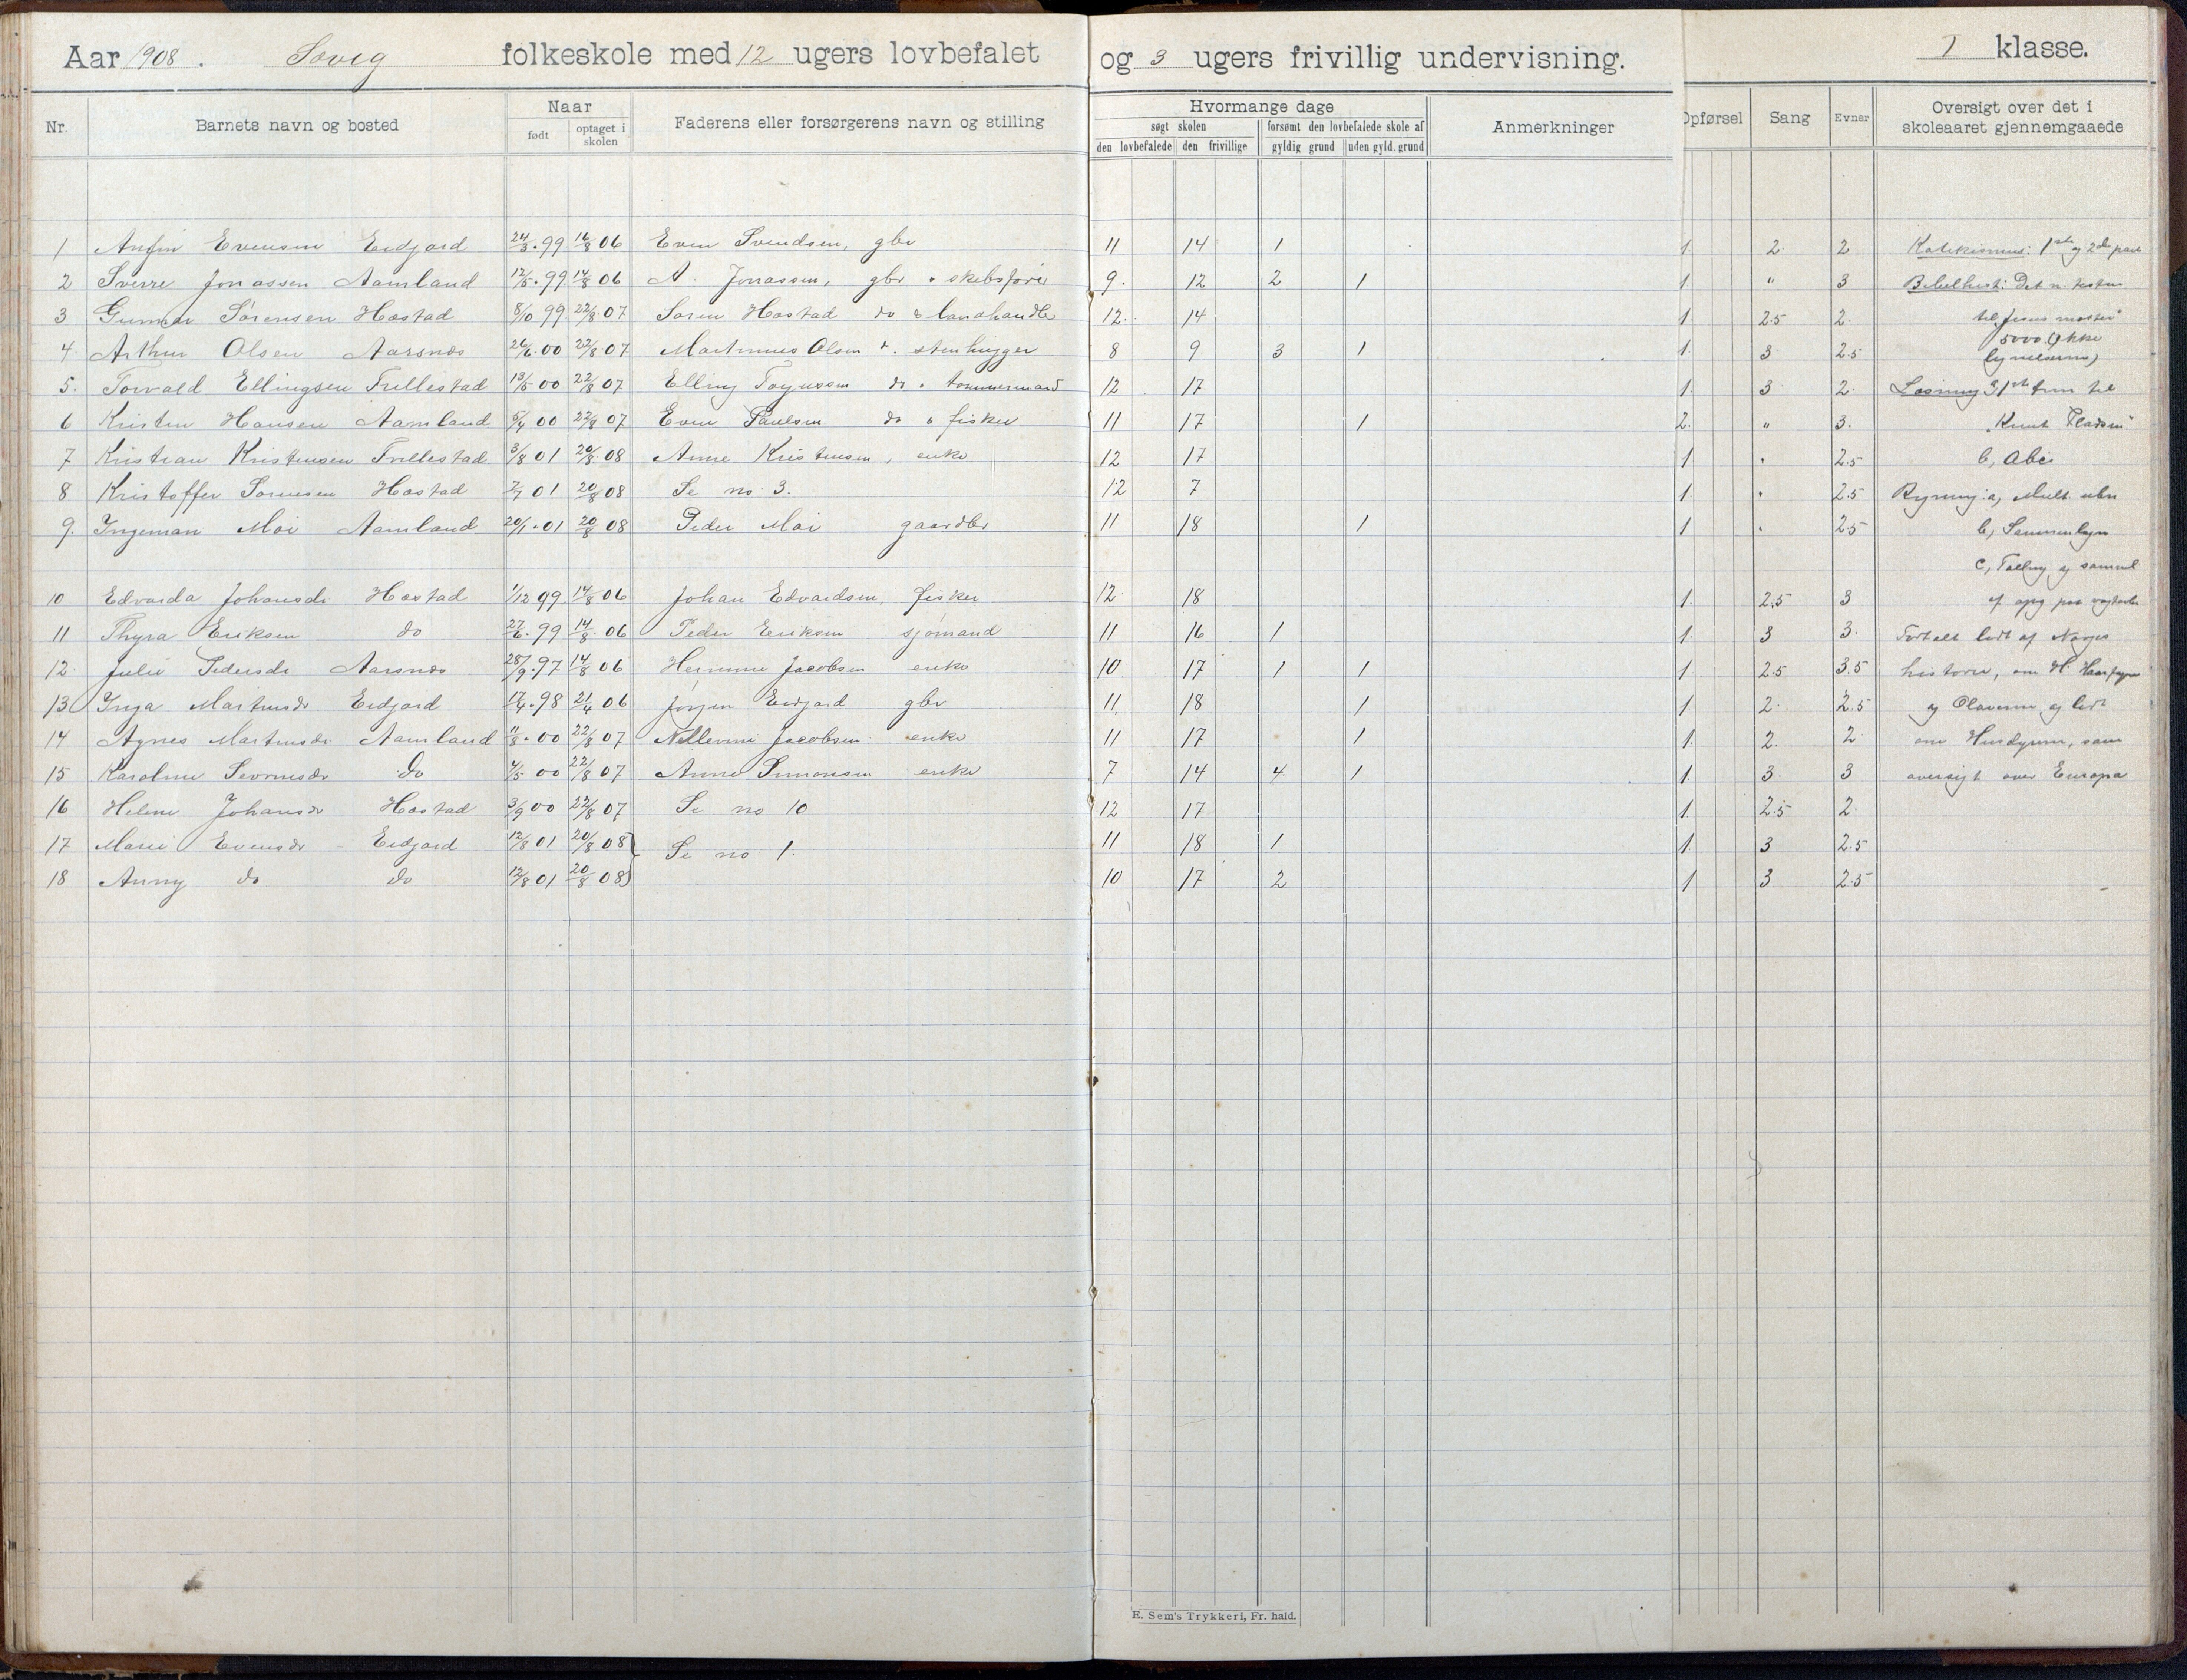 Aar 1908. Sovig folkeskole med 12 ugers lovbefalet og 3 ugers frivillig undervisning. 1 klasse.
Nr. Barnets navn og bosted Naar født optaget i skolen Faderens eller forsørgerens navn og stilling Hvormange dage søgt skolen den lovbefalede den frivillige forsømt den lovbefalede skole af gyldig grund uden gyld. grund Anmerkninger Opførsel Sang Evner Oversigt over det i skoleaaret gjennemgaaede
1 Anfin Evensen Eidjord 24/3.99 16/8 06 Even Svendsen, gbr 11 14 1 1 2. 2 Katekismus: 1ste og 2den part
2 Sverre Jonassen Aamland 12/5.99 14/8 06 A. Jonassen, gbr " skibsfører 9. 12 2 1 1 " 3 Bibelhist: Det n. testm
3 Gunnar Sørensen Hæstad 8/10 99 22/8.07 Søren Hæstad do & landhandler 12. 14 1 2.5 2. til "Jesus mætter
4. Arthur Olsen Aarsnes 26/6.00 22/8 07 Martinius Olsen stenhugger 8 9 3 1 1. 3 2.5 5000 (ikke
5. Torvald Ellingsen Frellestad 13/5 00 22/8 07 Elling Torjussen do " tømmermand 12 17 1. 3 2. Læsning a, 1ste trin til
6 Kristen Hansen Aamland 5/4 00 22/8 07 Even Paulsen do " fisker 11 17 1 2. " 3. "Knut
7 Kristian Kristensen Frellestad 3/8 01 20/8.08 Anne Kristensen, enke 12 17 1 " 2.5 b, Abc
8 Kristoffer Sørensen Hæstad 7/7 01 20/8 08 Se no 3. 12 7 1. " 2.5 Regning: a,
9. Ingeman Moi Aamland 20/1.01 20/8 08 Peder Moi gaardbr 11 18 1 1 " 2.5 b,
c,
10 Edvarda Johansdr Hæstad 1/12 99 14/8 06 Johan Edvardsen, fisker 12. 18 1. 2.5 3
11 Thyra Eriksen do 27/6.99 14/8.06 Peder Eriksen sjømand 11 16 1 1. 3 3. Fortalt lidt af Norges
12. Julie Pedersdr Aarsnes 28/9.97 14/8 06 Hermine Jacobsen enke 10 17 1 1 1 2.5 3.5 historie, om H. Haarfagre
13 Inga Martinsdr Eidjord 17/4.98 21/4 06 Jørgen Eidjord gbr 11. 18 1 1 2. 2.5 og Olaverne og lidt
14 Agnes Martinsdr Aamland 11/8.00 22/8 07 Nillemine Jacobsen enke 11 17 1 1. 2. 2 om Husdyrene, samt
15 Karoline Severinsdr do 4/5 00 22/8 07 Anne Simonsen enke 7 14 4. 1 1. 3. 3 oversigt over Europa
16 Helene Johansdr Hæstad 3/9 00 22/8 07 Se no 10 12 17 1. 2.5 2.
17 Marie Evensdr Eidjord 12/8 01 20/8 08 Se no 1. 11 18 1 1. 3 2.5
18 Anny do do 12/8 01 20/8 08 10 17 2 1 3 2.5
E. Sem's Trykkeri, Fr. hald.